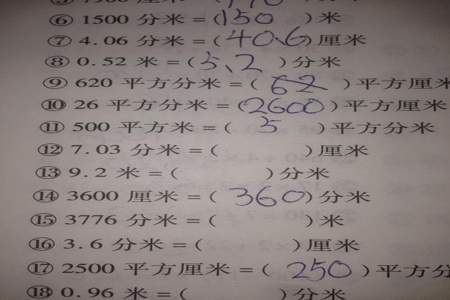 ⑥ 1500 分米 = (150 ) 米
⑦ 4.06 分米 = (40.6) 厘米
⑧ 0.52 米 = (5.2 ) 分米
⑨ 620 平方分米 = ( 62 ) 平方厘米
⑩ 26 平方分米 = (2600) 平方厘米
⑪ 500 平方米 = ( 5 ) 平方分米
⑫ 7.03 分米 = ( ) 厘米
⑬ 9.2 米 = ( ) 分米
⑭ 3600 厘米 = ( 360 ) 分米
⑮ 3776 分米 = ( ) 米
⑯ 3.6 分米 = ( ) 厘米
⑰ 2500 平方厘米 = ( 250 ) 平方分
⑱ 0.96 米 = ( ) 分米